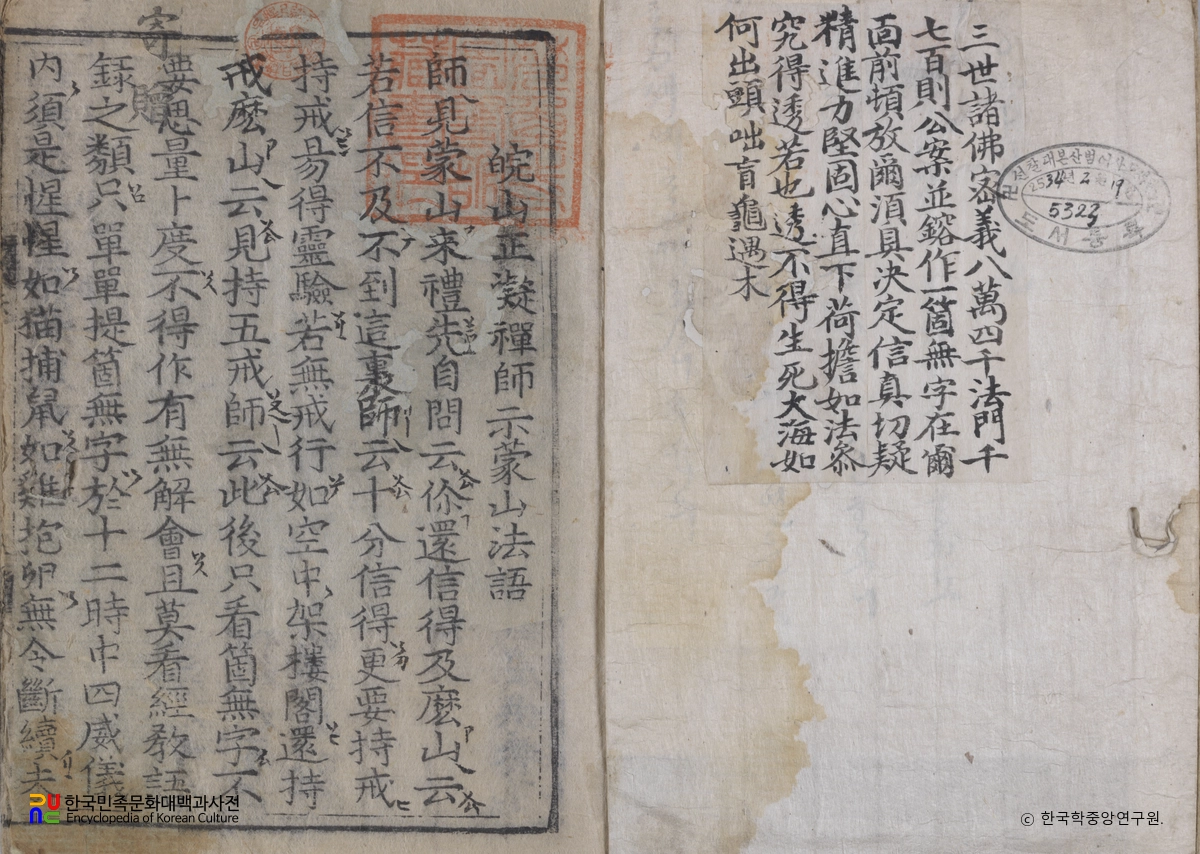 三世諸佛密義八萬四千法門千
七百則公案並鎔作一箇無字在爾
面前頓放爾須具決定信真切疑
精進力堅固心直下荷擔如法叅
究得透若也透不得生死大海如
何出頭咄盲龜遇木
5323
도서등록
皖山正凝禪師示蒙山法語
師見蒙山來禮先自問云你還信得及麽山云
若信不及不到這裏師云十分信得更要持戒
持戒易得靈驗若無戒行如空中架樓閣還持
戒麽山云見持五戒師云此後只看箇無字不
要思量卜度不得作有無解會且莫看經敎語
錄之類只單單提箇無字於十二時中四威儀
內須是惺惺如猫捕鼠如雞抱卵無令斷續未
寄
한국민족문화대백과사전
Encyclopedia of Korean Culture
ⓒ 한국학중앙연구원.